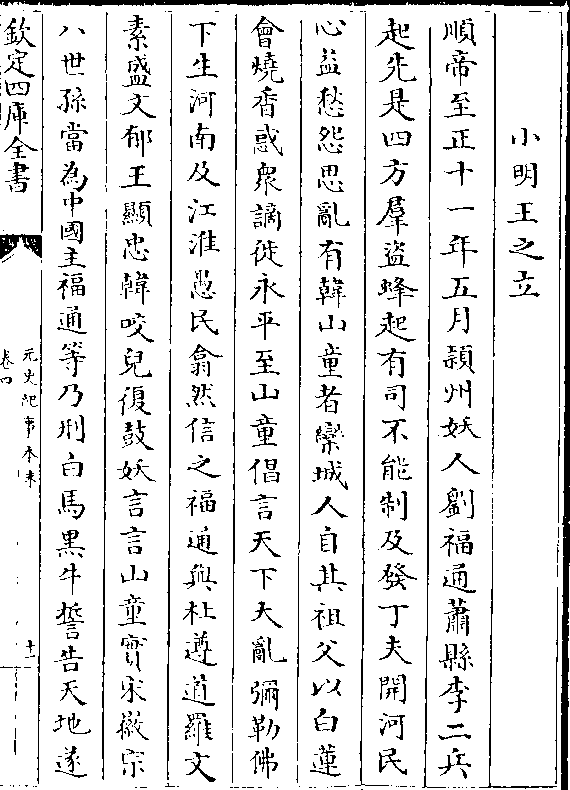 小明王之立
順帝至正十一年五月潁州妖人劉福通蕭縣李二兵
起先是四方羣盜蜂起有司不能制及發丁夫開河民
心益愁怨思亂有韓山童者欒城人自其祖父以白蓮
會燒香惑衆謫徙永平至山童倡言天下大亂彌勒佛
下生河南及江淮愚民翕然信之福通與杜遵道羅文
素盛文郁王顯忠韓咬兒復鼓妖言言山童實宋徽宗
八世孫當為中國主福通等乃刑白馬黑牛誓告天地遂
欽定四庫全書
元史紀事本末
卷四
十一